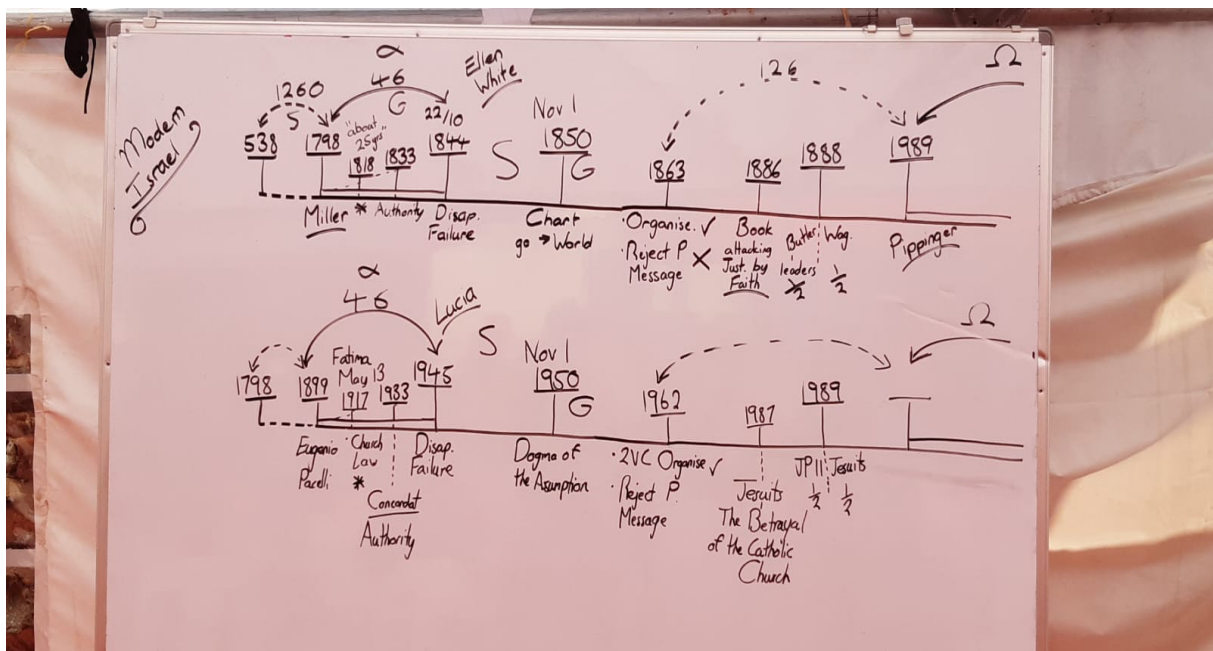 Modern
Israel
α
46
G
1260
S
Ellen
White
126
Ω
538
1798
"about
25yrs"
1818
1833
22/10
1844
S
Nov 1
1850
G
1863
1886
1888
1989
Miller
*
Authority
Disap.
Failure
Chart
go → World
· Organise. ✓
· Reject P
Message X
Book
attacking
Just. by
Faith
Butler
leaders
1/2
Wag.
1/2
Pippinger
α
46
Lucia
S
Ω
1798
1899
Fatima
May 13
1917
1983
1945
Nov 1
1950
G
1962
1987
1989
Eugenio
Pacelli
· Church
Law
*
Concordat
Authority
Disap.
Failure
Dogma of
the Assumption
· 2VC Organise ✓
· Reject P.
Message
Jesuits
The Betrayal
of the Catholic
Church
JPII
1/2
Jesuits
1/2